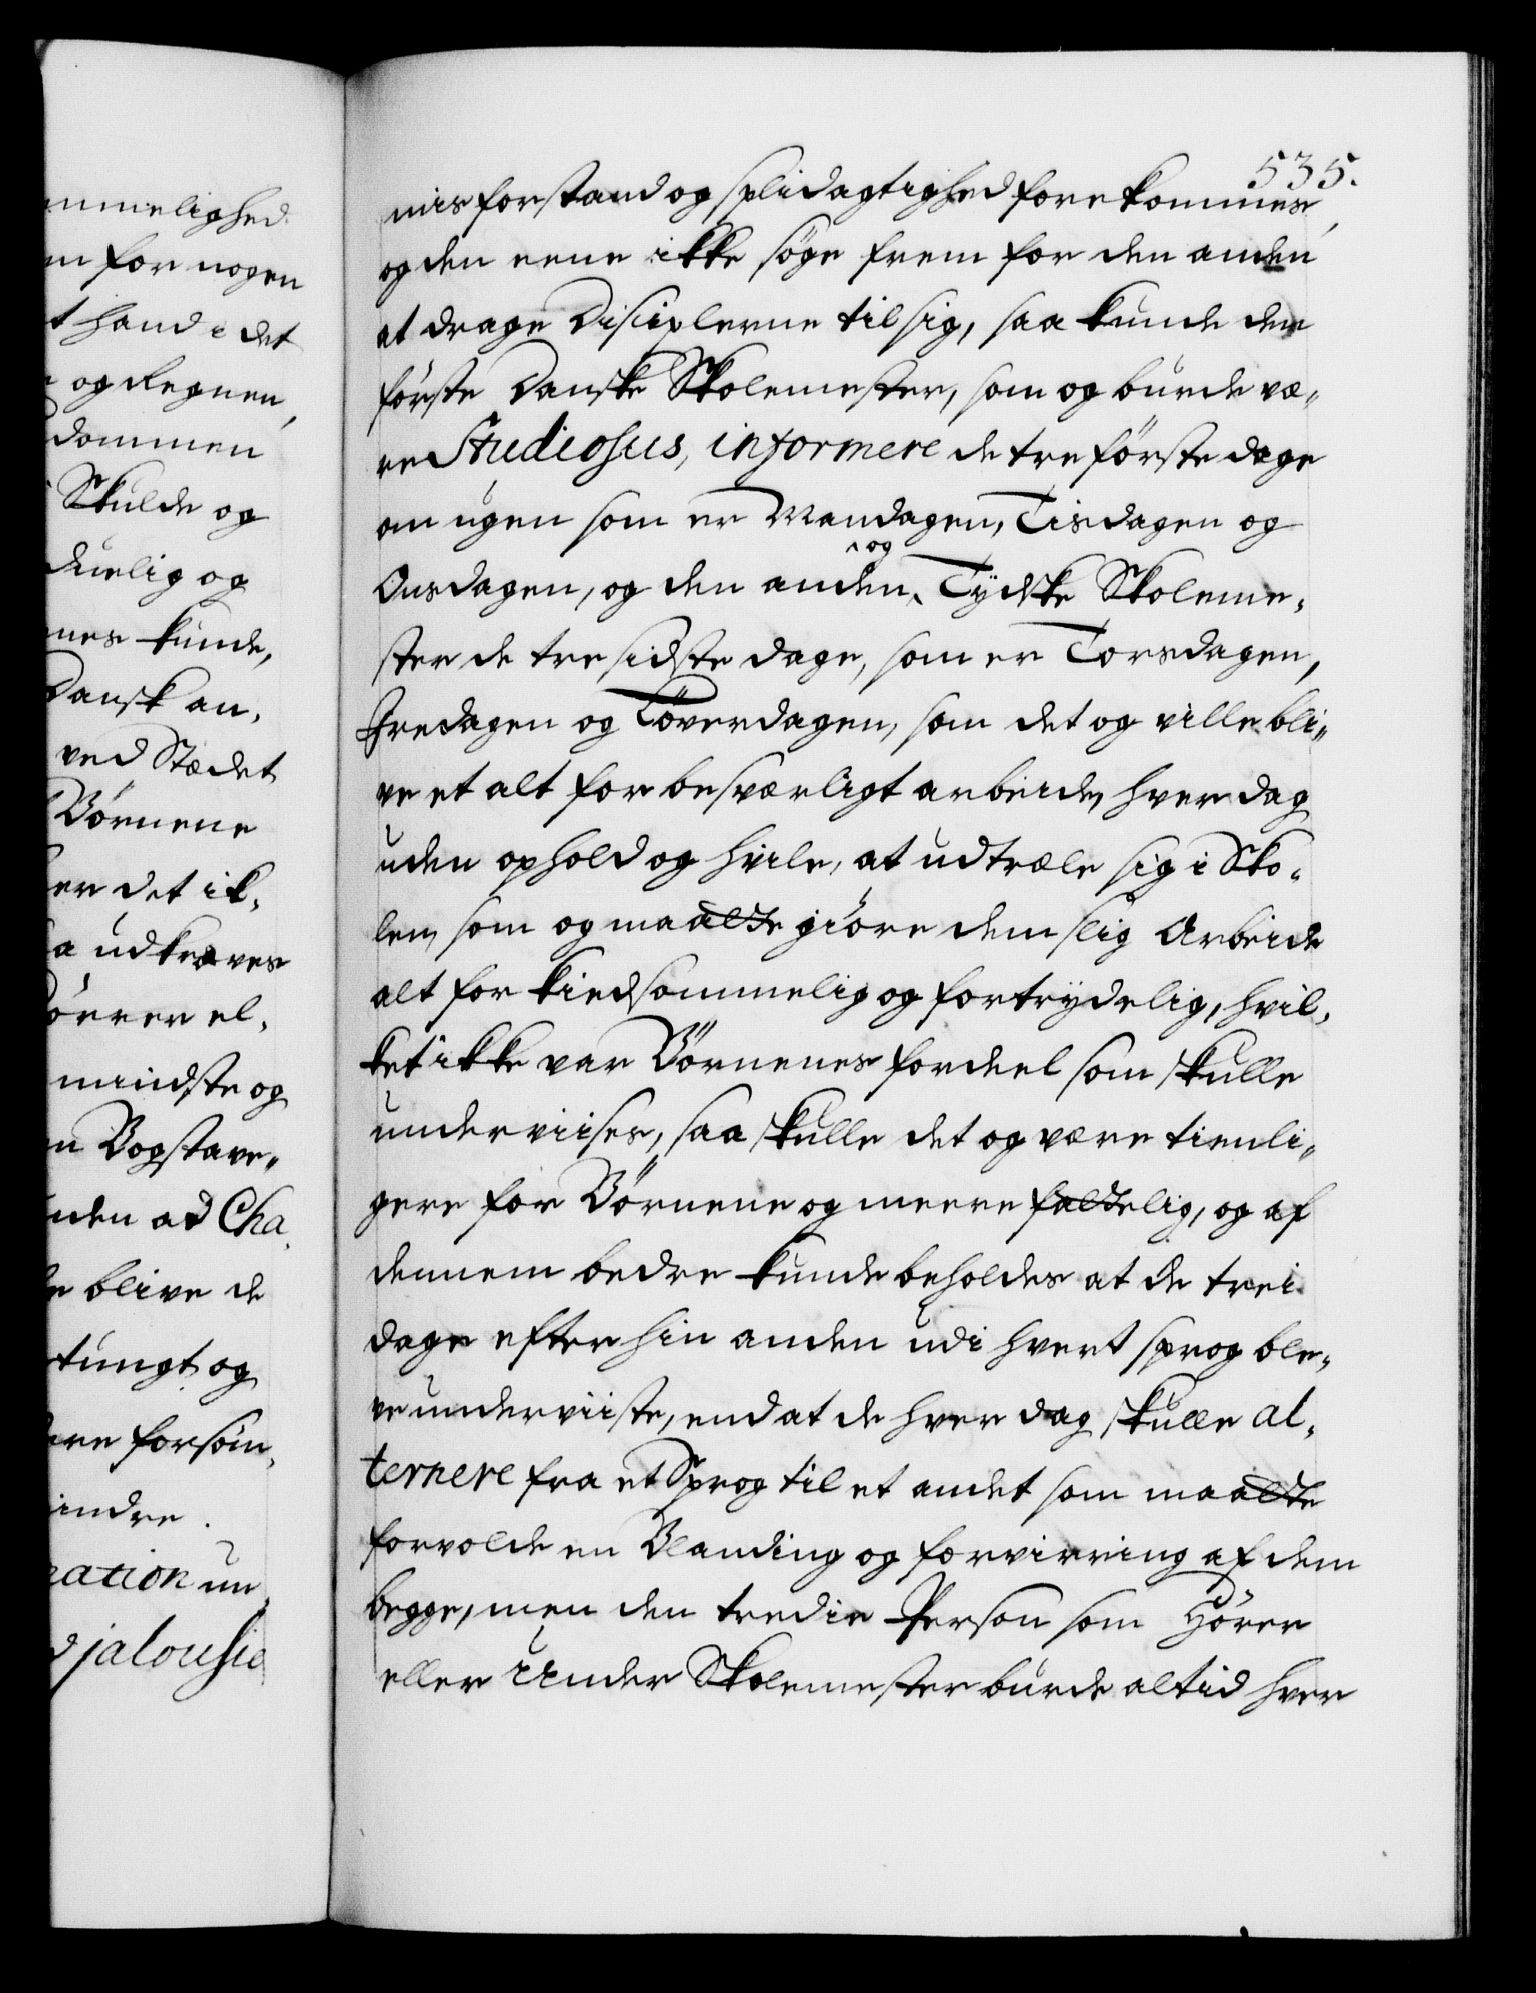 mmelighed
m for nogen
t hand i det
og Regnen,
dommen
Skulde og
duelig og
nes kunde,
Dansk an,
ved Stædet
Börnene
er det ik,
a udkræves
örer el,
mindste og
n Bogstave„
nden ad Cha,
e blive de
tungt og
re forsöm,
indre.
ation un,
d jalousie
535.
misforstand og splidagtighed forekommes,
og den eene ikke söge frem for den anden
at drage Disciplerne til sig, saa kunde den
förste Danske Skolemester, som og burde væ,
re Studiosus, informere de tre förste dage
om ugen som er Mandagen, Tisdagen og
Onsdagen, og den anden ^og Tydske Skoleme,
ster de tre sidste dage, som er Torsdagen,
Fredagen og Löverdagen, som det og ville bli„
ve et alt for besværligt arbeide, hver dag
uden ophold og hvile, at udtræle sig i Sko,
len, som og maatte giöre dem slig Arbeide
alt for kiedsommelig og fortrydelig, hvil,
ket ikke var Börnenes fordeel som skulle
underviises, saa skulle det og være tienli„
gere for Börnene og meere fattelig, og af
dennem bedre kunde beholdes at de trei
dage efter hin anden udi hvert sprog ble,
ve underviiste, end at de hver dag skulle al,
ternere fra et Sprog til et andet som maatte
forvolde en Blanding og forvirring af dem
begge, men den tredie Person som Hörer
eller Under Skolemester burde altid hver